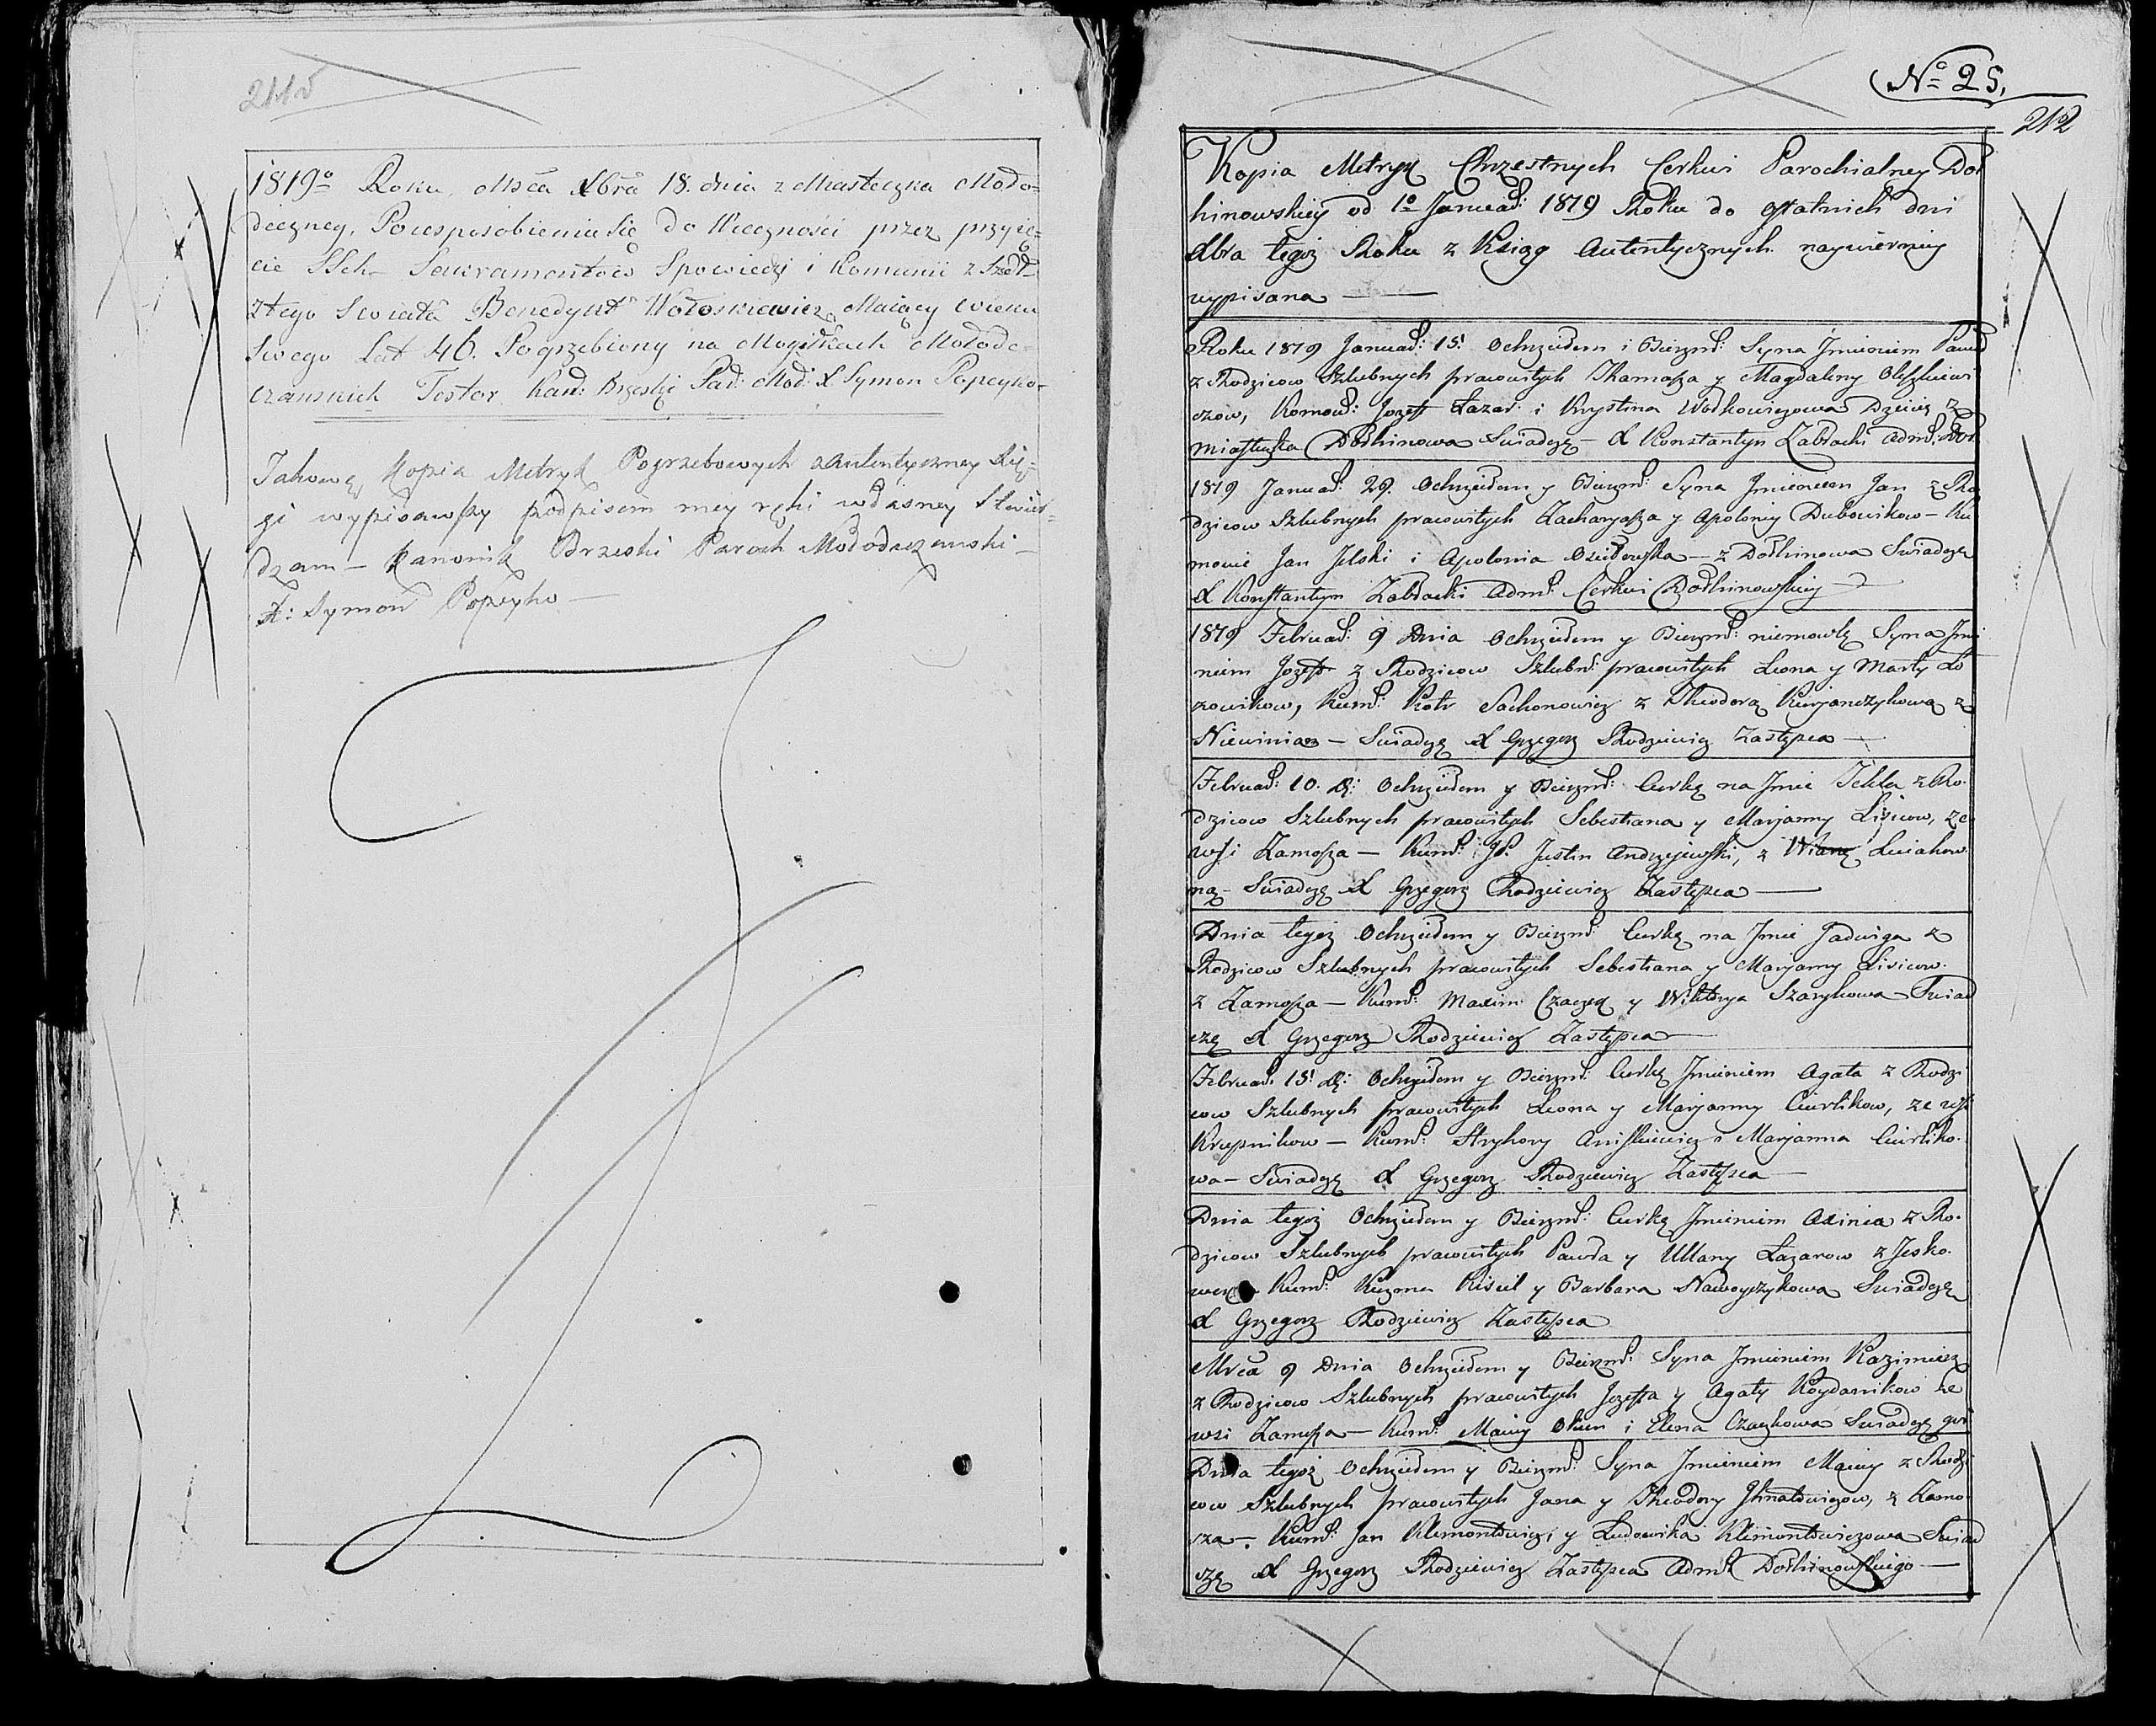 211v
1819º Roku Msca Xbra 18. dnia z Miasteczka Modo=
deczney, Pousposobieniu Się do Wiecznosci przez przyię=
cie SSch Sakramentów Spowiedzi i Komunii z Szedł
z tego Swiata Benedykt Wołoskiewicz Maiący wieku
Swego Lat 46. Pogrzebiony na Mogiłkach Mołode=
czanskich Testor Kan: Brzeski Par: Moł: X Symon Popeyko-
Takową Kopia Metryk Pogrzebowych z Autentyczney Się=
gi wypisawszy podpisem mey ręki własney Stwier=
dzam – Kanonik Brzeski Paroch Mołodeczanski –
X: Symon Popeyko –
Nº 25.
212
Kopia Metryk Chrzestnych Cerkwi Parochialney Doł
hinowskiey od 1º Januar: 1819 Roku do ostatnich dni
Xbra tegoż Roku z Xsiąg Autentycznych naywierniey
wypisana
Roku 1819 Januar: 15. Ochrzciłem i Bierzm: Syna Jmieniem Paweł
z Rodzicow Szlubnych pracowitych Thamasza y Magdaleny Oleszkiewi
czow, Komow: Jozeff Łazar i Krystina Wołkowiczowa Dziecię z
miasteczka Dołhinowa Swiadczę – X Konstantyn Zabłocki Adm: Doł.
1819 Januar: 29. Ochrzciłem y Bierzm: Syna Jmieniem Jan z Ro
dzicow Szlubnych pracowitych Zacharyasza y Apolonij Dubowikow – Ku
mowie Jan Jelski i Apolonia – z Dołhinowa Swiadczę
X Konstantyn Zabłocki Adm: Cerkwi Dołhinowskiey
1819 Februar: 9 Dnia Ochrzciłem y Bierzm: niemowlę Syna Jmie
niem Jozeff z Rodzicow Szlubn: pracowitych Leona y Marty Ło
zowikow, Kum: Piotr Sachonowicz z Theodorą Kurjanczykową z
Niewiniaz – Swiadczę X Grzegorz Rodziewicz Zastępca –
Februar: 10. D: Ochrzciłem y Bierzm: Curkę na Jmie Tekla z Ro
dzicow Szlubnych pracowitych Sebestiana y Maryanny Lisicow, ze
wsi Zamosza – Kum: Jp. Justin Andrzejewski, z
ną – Swiadczę X Grzegorz Rodziewicz Zastępca
Dnia tegoż Ochrzciłem y Bierzm: Curkę na Jmie Jadwiga z
Rodzicow Szlubnych pracowitych Sebestiana y Maryanny Lisicow
z Zamosza – Kum: Maxim Czaczeq y Wiktorya Szarykowa Swiad
czę X Grzegorz Rodziewicz Zastępca
Februar: 15. D: Ochrzciłem y Bierzm: Curkę Jmieniem Agata z Rodzi
cow Szlubnych pracowitych Leona y Maryanny Cierlikow, ze wsi
Krupnikow – Kum: Hryhory Aniskiewicz i Maryanna Cierliko
wa – Swiadczę X Grzegorz Rodziewicz Zastępca
Dnia tegoż Ochrzciłem y Bierzm: Curkę Jmieniem Axinia z Ro
dzicow Szlubnych pracowitych Pawła y Ullany Łazarow z Jesko
Kum: Kuzma Kisiel y Barbara Nawoyczykowa Swiadczę
X Grzegorz Rodziewicz Zastępca
Mrca 9 Dnia Ochrzciłem y Bierzm: Syna Jmieniem Kazimierz
z Rodzicow Szlubnych pracowitych Jozeffa y Agaty Koydanikow ze
wsi Zamosza – Kum: Maciey Okun i Elena Czaczkowa Swiadczę
Dnia tegoż Ochrzciłem y Bierzm: Syna Jmieniem Maciey z Rodzi
cow Szlubnych pracowitych Jana y Theodory Jhnatowiczow, z Zamo
sza –. Kum: Jan Klimontowicz y Ludowika Klimontowiczowa Swiad
czę X Grzegorz Rodziewicz Zastępca Adm: Dołhinowskiego –